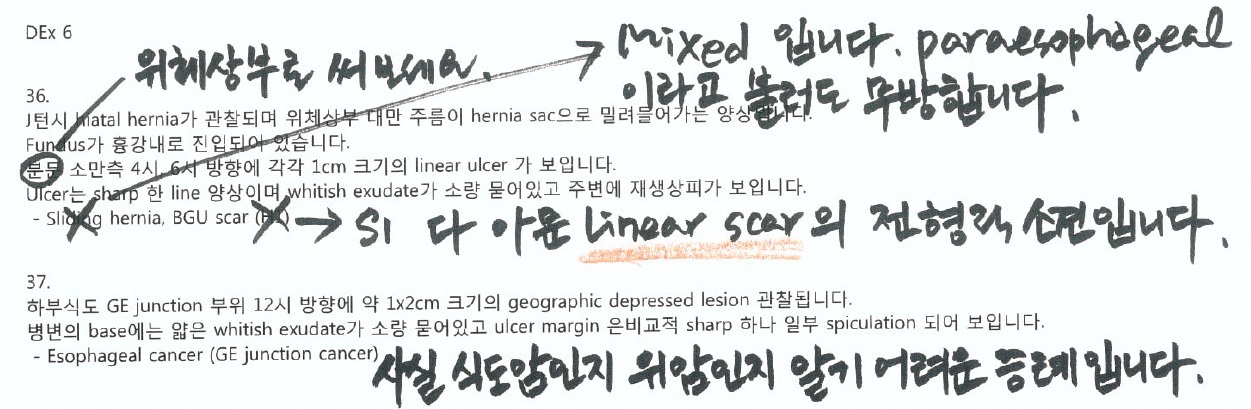 DEx 6
위체상부로 써보세요.
Mixed 입니다. paraesophageal
이라고 불러도 무방합니다.
36.
J턴시 hiatal hernia가 관찰되며 위체상부 대만 주름이 hernia sac으로 밀려들어가는 양상입니다.
Fundus가 흉강내로 진입되어 있습니다.
분문 소만측 4시, 6시 방향에 각각 1cm 크기의 linear ulcer 가 보입니다.
Ulcer는 sharp 한 line 양상이며 whitish exudate가 소량 묻어있고 주변에 재생상피가 보입니다.
- Sliding hernia, BGU scar
S1 다 아문 linear scar의 전형적 소견입니다.
37.
하부식도 GE junction 부위 12시 방향에 약 1x2cm 크기의 geographic depressed lesion 관찰됩니다.
병변의 base에는 얇은 whitish exudate가 소량 묻어있고 ulcer margin 은비교적 sharp 하나 일부 spiculation 되어 보입니다.
- Esophageal cancer (GE junction cancer)
사실 식도암인지 위암인지 알기 어려운 증례입니다.